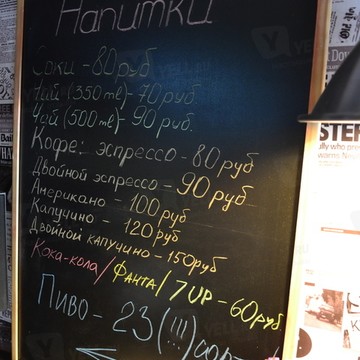 Напитки
Соки - 80 руб
Чай (350 ml) - 70 руб.
Чай (500 ml) - 90 руб.
Кофе: эспрессо - 80 руб
Двойной эспрессо - 90 руб
Американо - 100 руб
Капучино - 120 руб
Двойной капучино - 150 руб
Кока-кола / Фанта / 7UP - 60 руб.
Пиво - 23 (!!!)
STEP